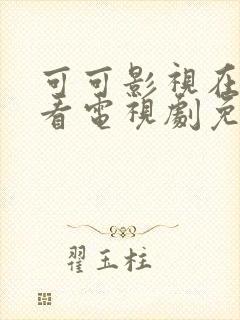 可可影視在
看電視劇免
翟玉柱